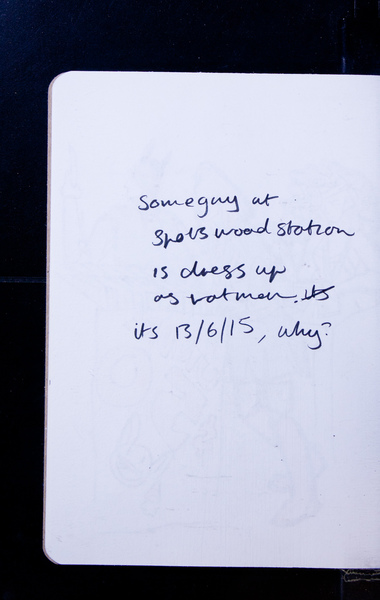 Someguy at
Spotswood station
is dress up
as ratman. its
its 13/6/15, why?